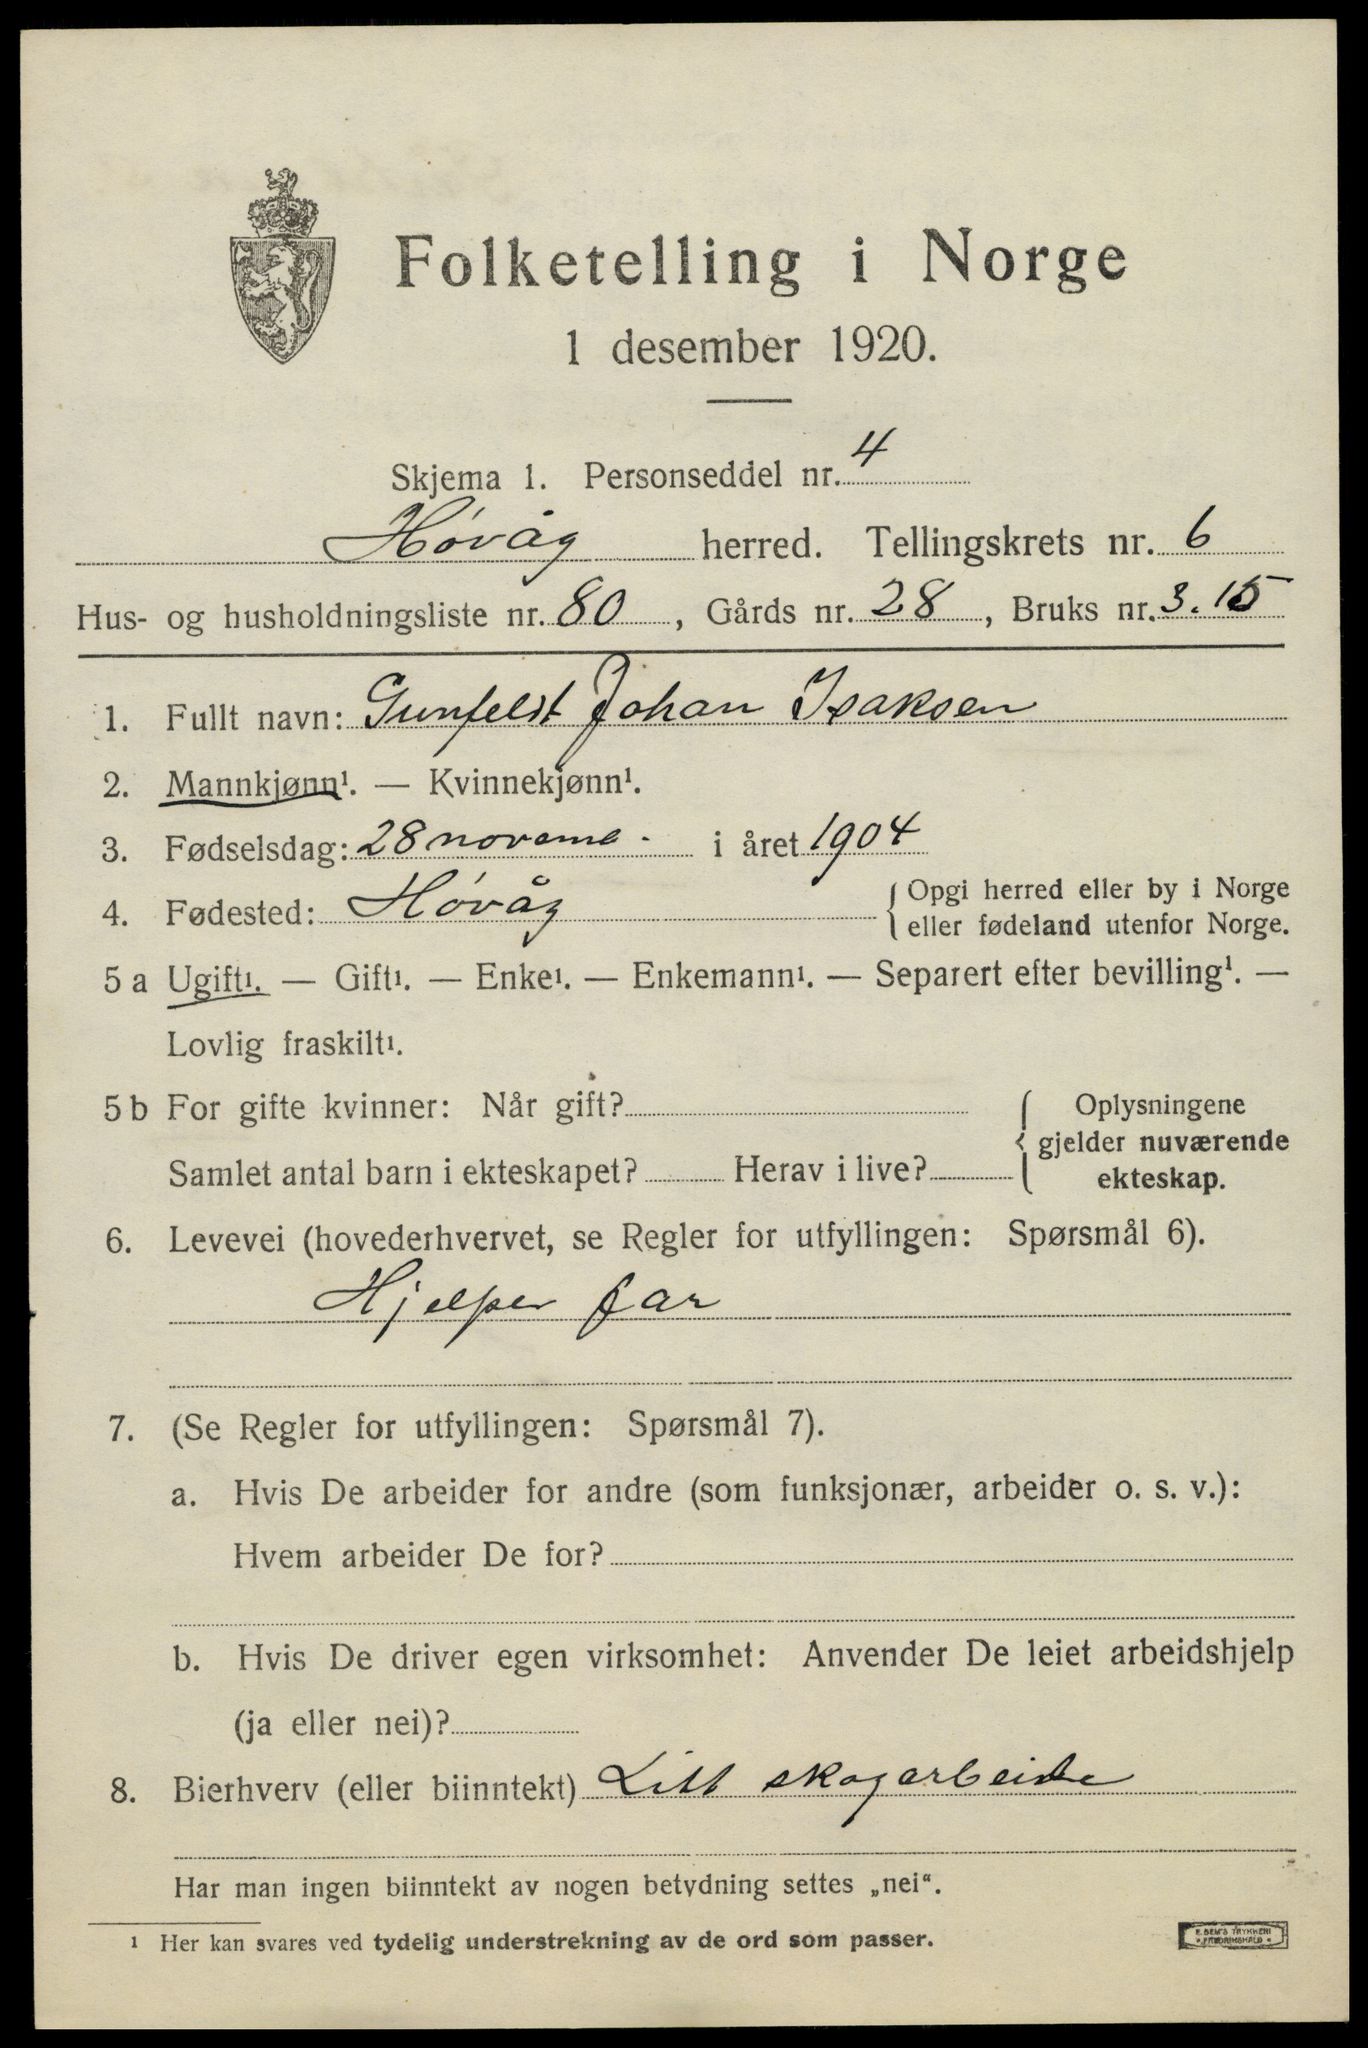 Folketelling i Norge
1 desember 1920.
Skjema 1. Personseddel nr. 4
Høvåg herred. Tellingskrets nr. 6
Hus- og husholdningsliste nr. 80, Gårds nr. 28, Bruks nr. 3.15
1. Fullt navn: Gunfeldt Johan Isaksen
2. Mannkjønn¹. — Kvinnekjønn¹.
3. Fødselsdag: 28 novemb. i året 1904
4. Fødested: Høvåg { Opgi herred eller by i Norge
eller fødeland utenfor Norge.
5 a Ugift¹. — Gift¹. — Enke¹. — Enkemann¹. — Separert efter bevilling¹. —
Lovlig fraskilt¹.
5 b For gifte kvinner: Når gift? { Oplysningene
gjelder nuværende
Samlet antal barn i ekteskapet? Herav i live? ekteskap.
6. Levevei (hovederhvervet, se Regler for utfyllingen: Spørsmål 6).
Hjelper far
7. (Se Regler for utfyllingen: Spørsmål 7).
a. Hvis De arbeider for andre (som funksjonær, arbeider o. s. v.):
Hvem arbeider De for?
b. Hvis De driver egen virksomhet: Anvender De leiet arbeidshjelp
(ja eller nei)?
8. Bierhverv (eller biinntekt) Litt skogarbeide
Har man ingen biinntekt av nogen betydning settes „nei“.
¹ Her kan svares ved tydelig understrekning av de ord som passer.
E. SEM'S TRYKKERI
FREDRIKSHALD